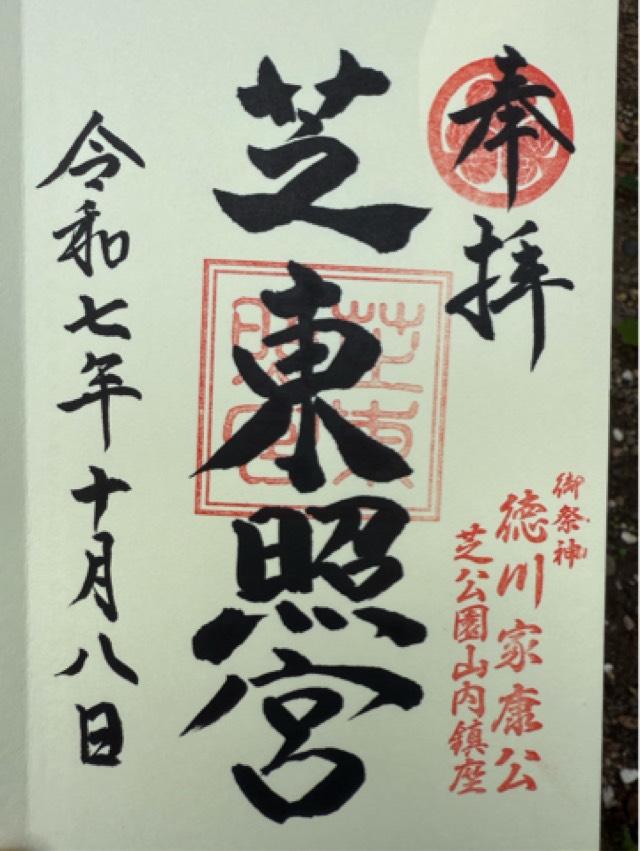 奉拝
御祭神
徳川家康公
芝公園山内鎮座
芝東照宮
芝東照宮
令和七年十月八日